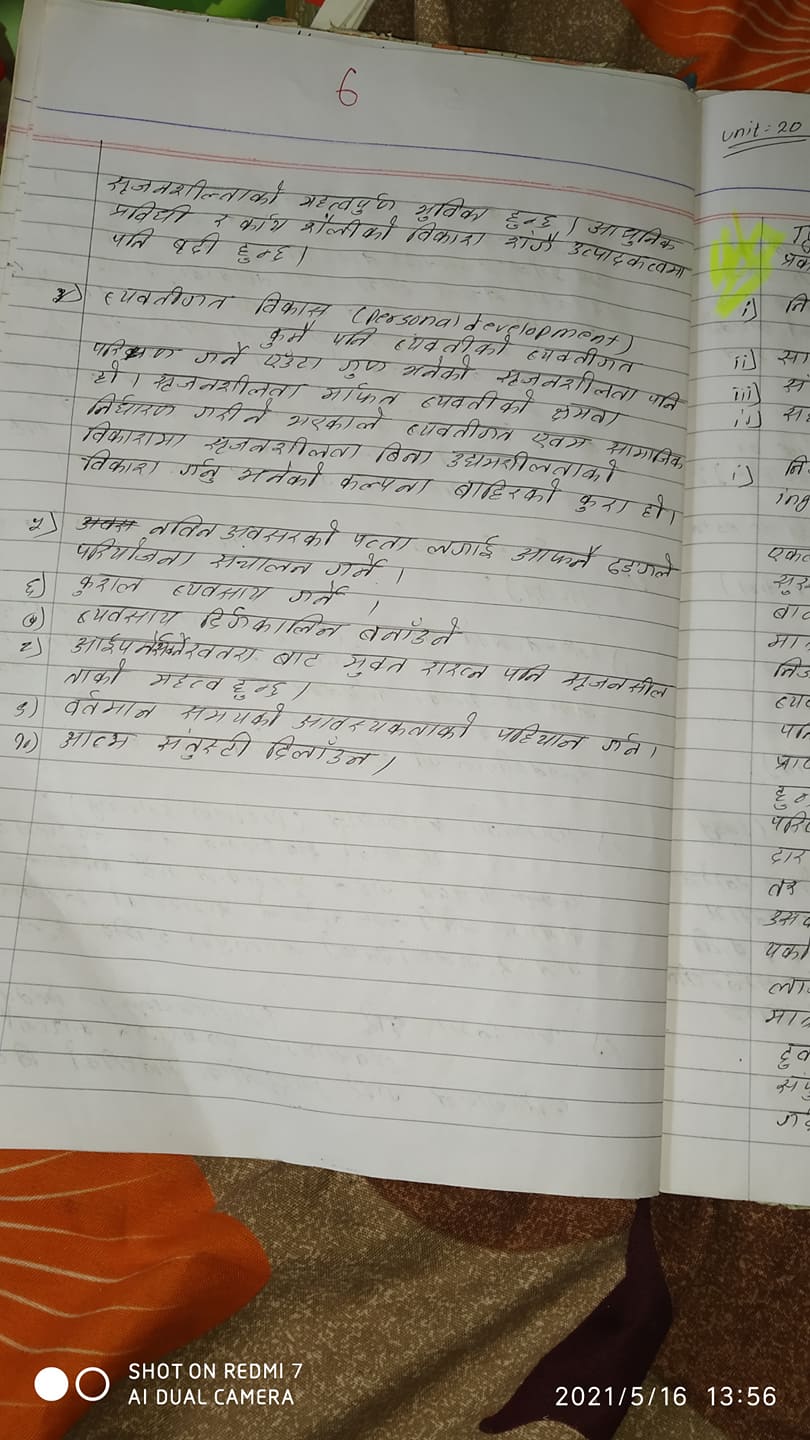 6
सृजनशील्ताको महत्वपुर्ण भुविका हुन्छ । आधुनिक
प्रविधी र कार्य शैलीको विकास संगै उत्पादकत्वमा
पनि बृदी हुन्छ ।
४) व्यक्तीगत विकास (personal development)
कुनै पनि व्यक्तीको व्यक्तीगत
गर्ने एउटा गुण भनेको सृजनशीलता पनि
हो । सृजनशीलता मार्फत व्यक्तीको क्षमता
निर्धारण गरीने भएकाले व्यक्तीगत एवम सामाजिक
विकासमा सृजनशीलता बिना उद्यमशीलताको
विकास गर्नु भनेको कल्पना बाहिरको कुरा हो ।
५) नविन अवसरको पत्ता लगाई आफ्नै ढङ्गले
परियोजना संचालन गर्ने ।
६) कुशल व्यवसाय गर्ने ।
७) व्यवसाय दिर्गकालिन बनाँउने
८) खतरा बाट मुक्त राख्न पनि सृजनसील
ताको महत्व हुन्छ ।
९) वर्तमान समयको आवस्यकताको पहियान गर्न ।
१०) आत्म संतुस्टी दिलाँउन ।
unit: 20
i) नि
ii) सा
iii) सं
iv) स
i) नि
ing
एक
सुर
बा
मा
निज
व्य
पनि
प्रा
हु
परि
दार
तर
उस
ला
मा
हुव
SHOT ON REDMI 7
AI DUAL CAMERA
2021/5/16 13:56